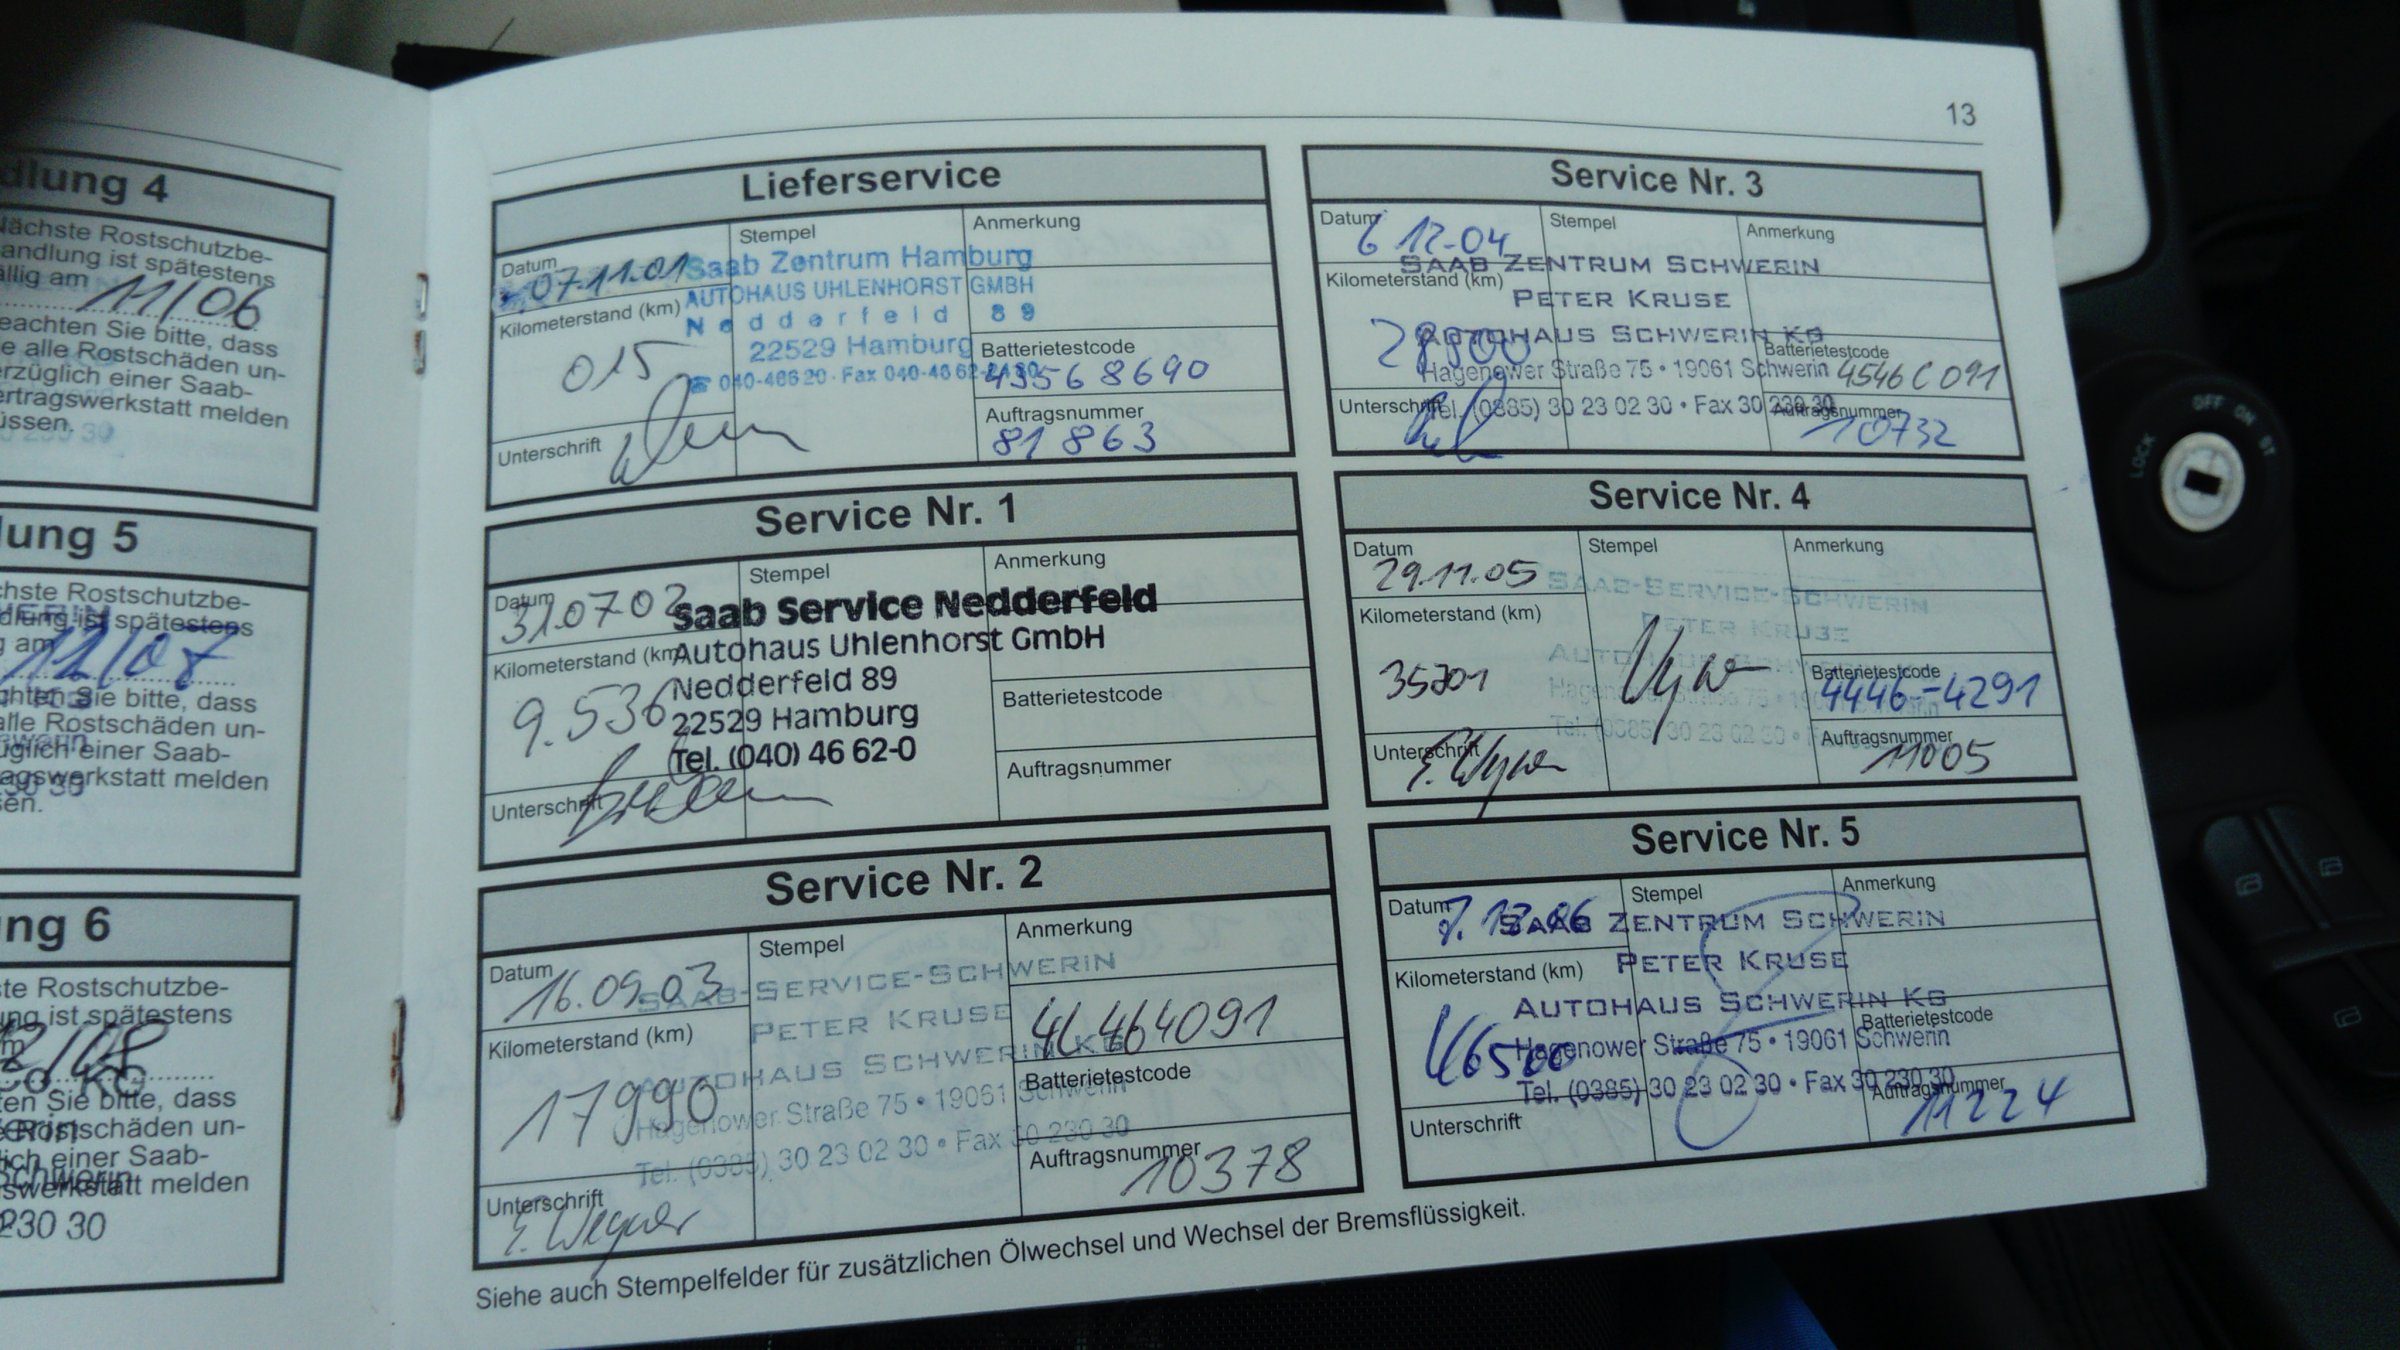 dlung 4
Nächste Rostschutzbe-
andlung ist spätestens
ällig am 11/06
eachten Sie bitte, dass
e alle Rostschäden un-
erzüglich einer Saab-
ertragswerkstatt melden
üssen.
lung 5
chste Rostschutzbe-
dlung ist spätestens
g am 12/07
chten Sie bitte, dass
alle Rostschäden un-
üglich einer Saab-
agswerkstatt melden
sen.
ng 6
te Rostschutzbe-
ung ist spätestens
m 12/08
ten Sie bitte, dass
Rostschäden un-
lich einer Saab-
swerkstatt melden
230 30
13
Lieferservice
Datum 07.11.01
Stempel
Anmerkung
Saab Zentrum Hamburg
AUTOHAUS UHLENHORST GMBH
Nedderfeld 89
22529 Hamburg
Kilometerstand (km)
015
Batterietestcode
43568690
Unterschrift
Auftragsnummer
81863
Service Nr. 1
Datum
31.07.02
Stempel
Anmerkung
Saab Service Nedderfeld
Autohaus Uhlenhorst GmbH
Nedderfeld 89
22529 Hamburg
Tel. (040) 46 62-0
Kilometerstand (km)
9.536
Batterietestcode
Unterschrift
Auftragsnummer
Service Nr. 2
Datum
16.09.03
Stempel
Anmerkung
SAAB-SERVICE-SCHWERIN
PETER KRUSE
AUTOHAUS SCHWERIN KG
Hagenower Straße 75 • 19061 Schwerin
Tel. (0385) 30 23 02 30 • Fax 30 230 30
Kilometerstand (km)
17990
Batterietestcode
Unterschrift
E. Wegner
Auftragsnummer
10378
Service Nr. 3
Datum
6 12-04
Stempel
Anmerkung
SAAB ZENTRUM SCHWERIN
PETER KRUSE
AUTOHAUS SCHWERIN KG
Hagenower Straße 75 • 19061 Schwerin
Tel. (0385) 30 23 02 30 • Fax 30 230 30
Kilometerstand (km)
Batterietestcode
4546C091
Unterschrift
Auftragsnummer
10732
Service Nr. 4
Datum
29.11.05
Stempel
Anmerkung
SAAB-SERVICE-SCHWERIN
PETER KRUSE
Kilometerstand (km)
Batterietestcode
4446-4291
Unterschrift
Auftragsnummer
11005
Service Nr. 5
Datum
Stempel
Anmerkung
SAAB ZENTRUM SCHWERIN
PETER KRUSE
AUTOHAUS SCHWERIN KG
Hagenower Straße 75 • 19061 Schwerin
Tel. (0385) 30 23 02 30 • Fax 30 230 30
Kilometerstand (km)
46500
Batterietestcode
Unterschrift
Auftragsnummer
11224
Siehe auch Stempelfelder für zusätzlichen Ölwechsel und Wechsel der Bremsflüssigkeit.
LOCK OFF ON ST